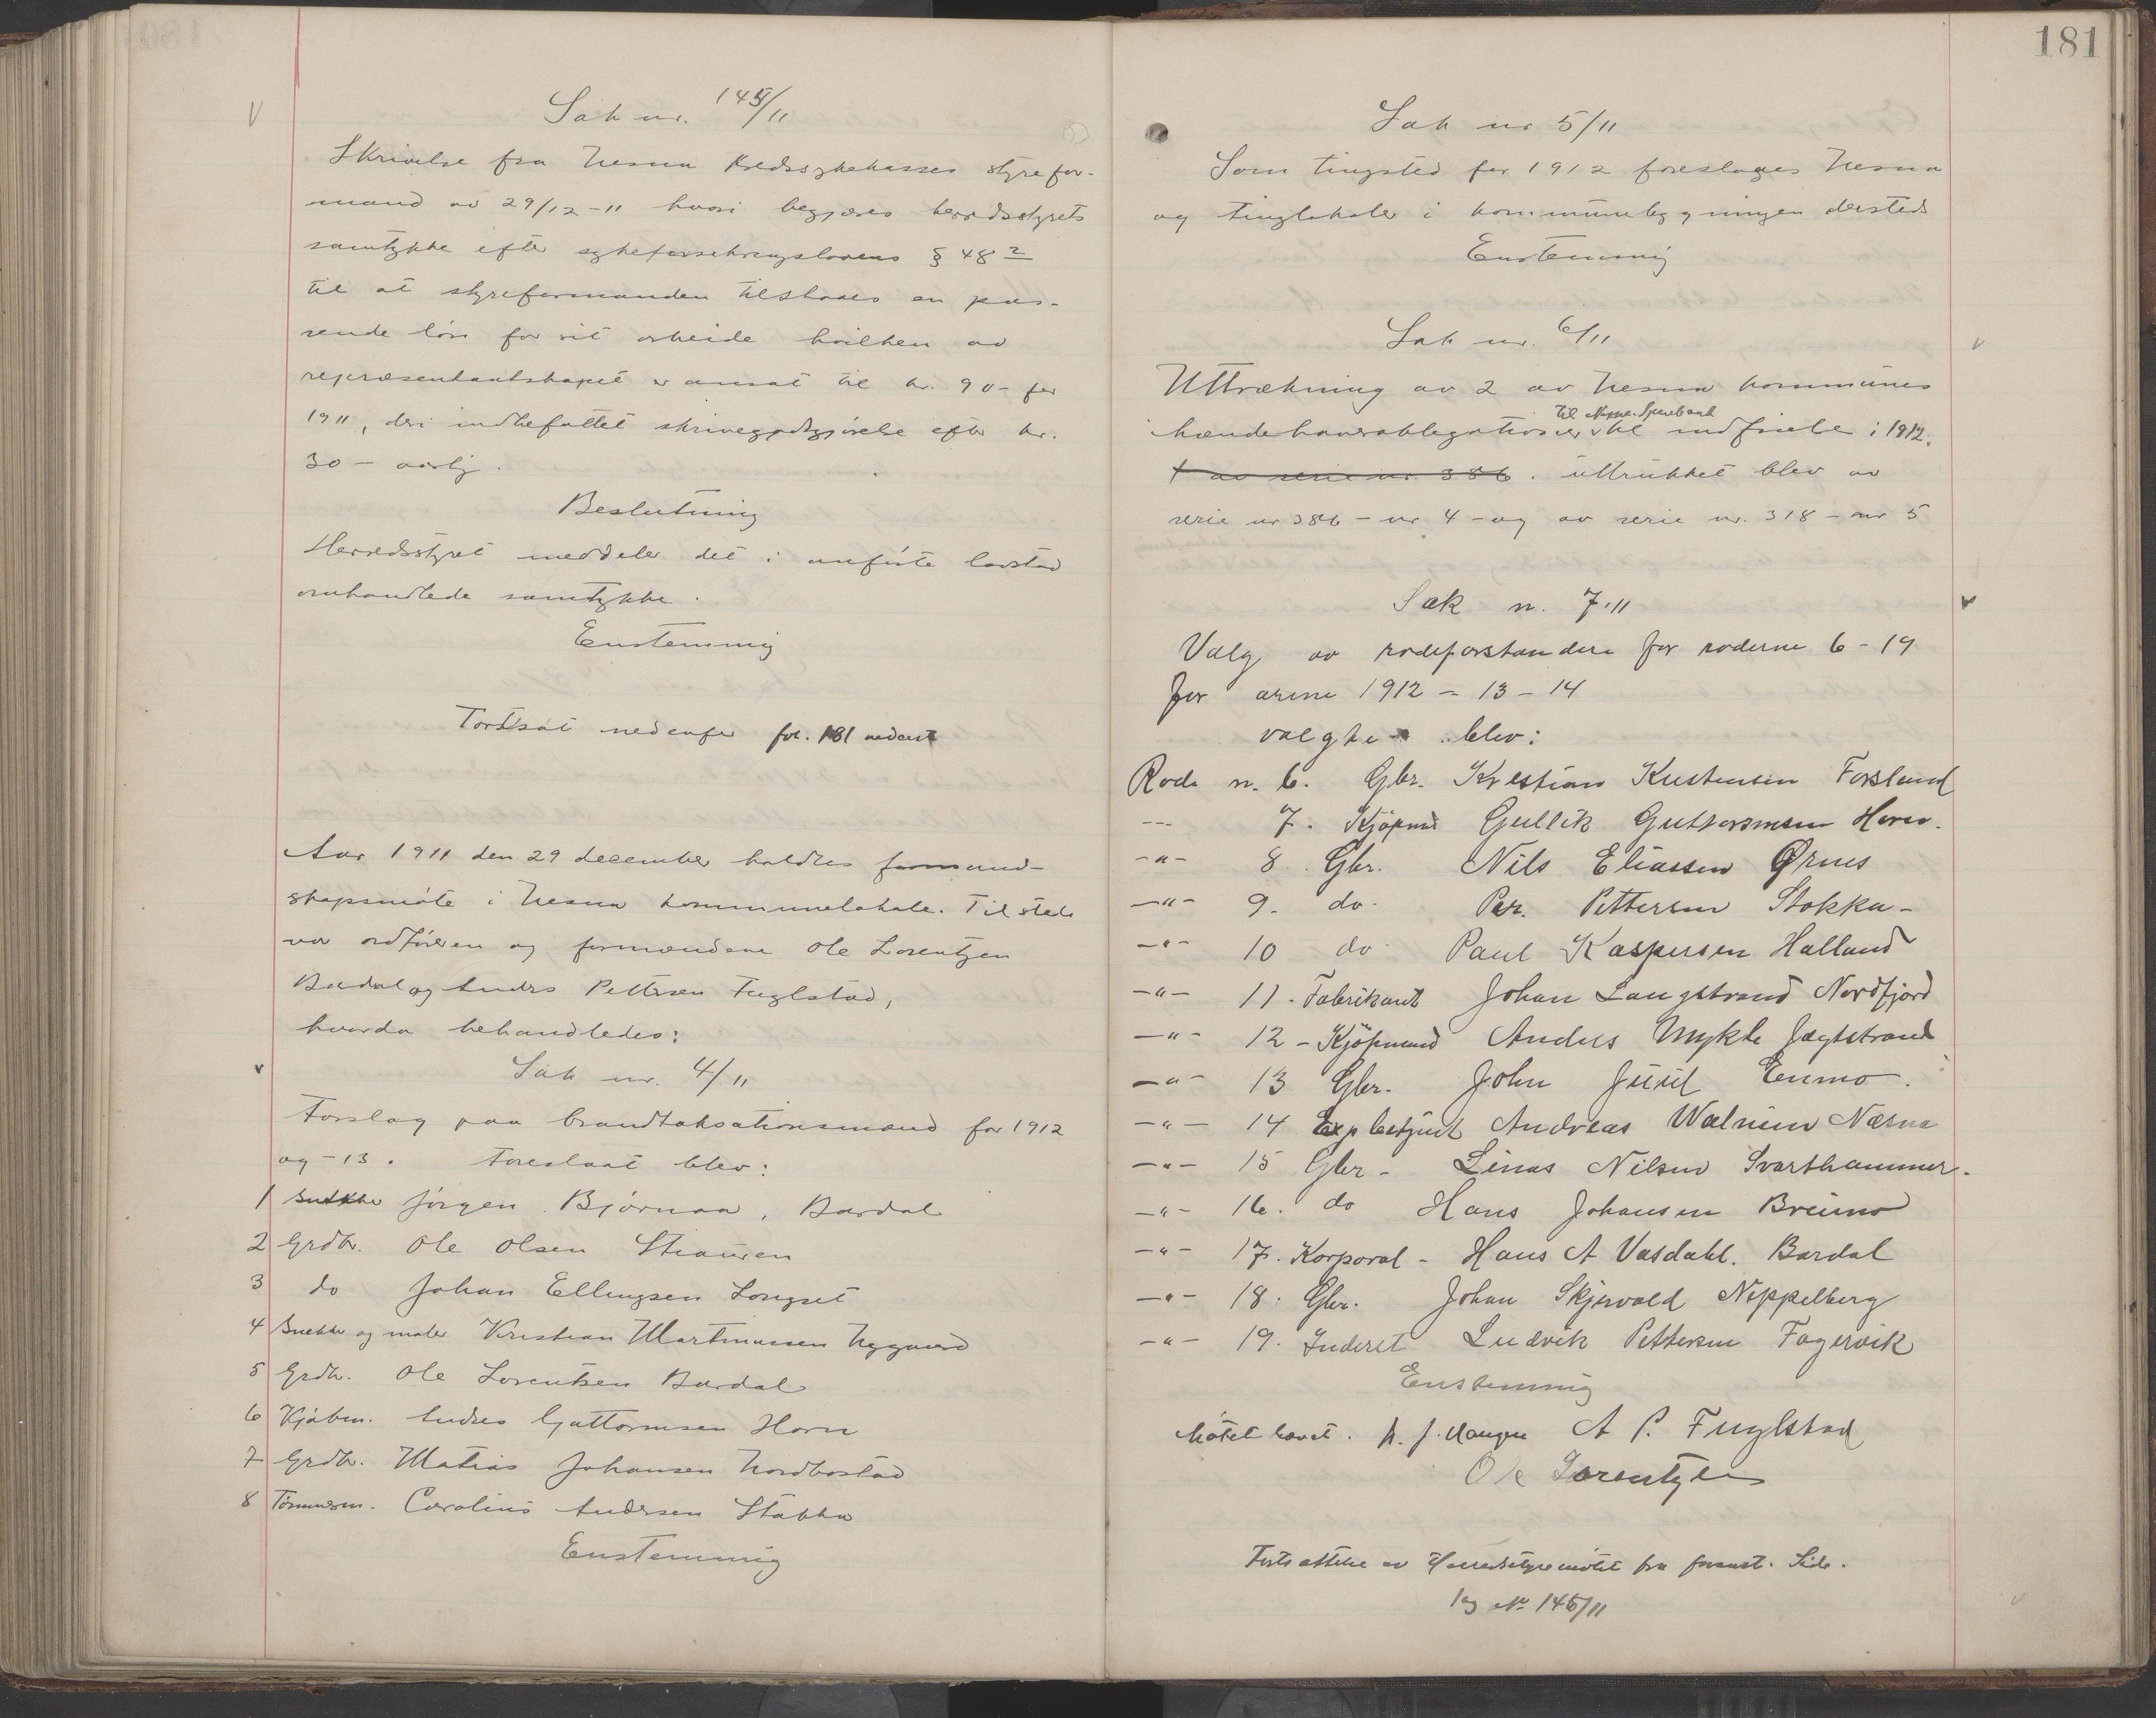 Sak nr. 145/11
Skrivelse fra Nesna Kredssykekasses styrefor-
mand av 29/12-11 hvori begjæres herredsstyrets
samtykke efter sykeforsikringslovens § 48 2
til at styreformanden tilstaaes en pas-
sende løn for sit arbeide hvilken av
repræsentantskapet er ansat til kr. 90- for
1911, deri indbefattet skrivegodtgjørelse efter kr.
30 - aarlig.
Beslutning
Herredsstyret meddeler det i anførte lovsted
omhandlede samtykke.
Enstemmig
Fortsat nedenfor fol. 181 nederst
Aar 1911 den 29 december holdtes formand-
skapsmøte i Nesna kommunelokale. Tilstede
var ordføreren og formændene Ole Lorentzen
Bardal og Anders Pettersen Fuglstad,
hvorda behandledes:
Sak nr. 4/11
Forslag paa brandtaksationsmænd for 1912
og -13. Foreslaat blev:
1 Snekker Jørgen Bjørnaa, Bardal
2 Grdbr. Ole Olsen Strauren
3 do Johan Ellingsen Longset
4 Snekker og maler Kristian Martinussen Nygaard
5 Grdbr. Ole Lorentsen Bardal
6 Kjøbm. Andreas Guttormsen Horn
7 Grdbr. Matias Johansen Nordbostad
8 Tømmerm. Carolius Andersen Stokka
Enstemmig
181
Sak nr 5/11
Som tingsted for 1912 foreslages Nesna
og tinglokale i kommunebygningen dersteds
Enstemmig
Sak nr. 6/11
Uttrækning av 2 av Nesna kommunes
til Næsna Sparebank
ihændehaverobligationer til indfrielse i 1912.
1 av serie nr. 386. uttrukket blev av
serie nr 386 - nr 4 - og av serie nr. 318 - nr 5
Sak n. 7/11
Valg av rodeforstandere for roderne 6-19
for arene 1912 - 13 - 14
valgte blev:
Rode n. 6. Gbr. Kristian Kristensen Forsland
--- 7. Kjøpmd Gullik Guttormsen Horn.
-"- 8. Gbr. Nils Eliassen Ørnes
-"- 9. do. Per. Pettersen Stokka-
-"- 10 do. Paul Kaspersen Halland
-"- 11. Fabrikant Johan Langstrand Nordfjord
-"- 12 - Kjøpmand Anders Mykle Jægtstrand
-"- 13 Gbr. John Juul Enmo.
-"- 14 Expbetjent Andreas Walnum Næsna
-"- 15 Gbr - Linus Nilsen Svarthammer.
-"- 16. do Hans Johansen Breimo
-"- 17. Korporal - Hans A Vasdahl. Bardal
-"- 18. Gbr. Johan Skjervold Nippelberg
-"- 19. Inderst Ludvik Pettersen Fagervik
Enstemmig
Møtet hævet. A P. Fuglstad
Ole Lorentzen
Fortsættelse av Herredsstyremøtet fra foranst. Side.
Sag No 146/11